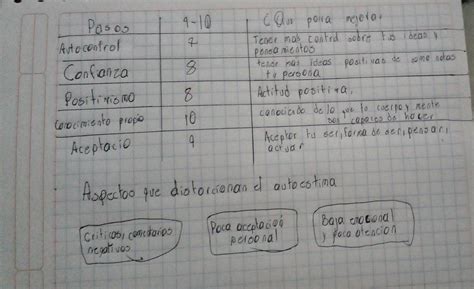 Pasos 1-10 Qué para mejorar
Autocontrol 7 Tener más control sobre tus ideas y
pensamientos
Confianza 8 tener más ideas positivas de como notas
tu persona
Positivismo 8 Actitud positiva,
conocimiento propio 10 conociendo de lo que tu cuerpo y mente
son capaces de hacer
Aceptacio 9 Aceptar tu ser, forma de ser, pensar,
actuar
Aspectos que distorcionan el autoestima
Criticas, comentarios
negativos
Poca aceptación
personal
Baja emocional
y poca atencion